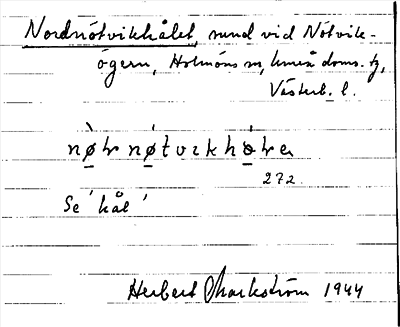 Nordnötvikhålet, sund vid Nötvik-
ögern, Holmöns sn, Umeå doms. tg,
Västerb. l.
nø̀r nøtvikhòre
272
Se 'hål'
Herbert Markström 1944